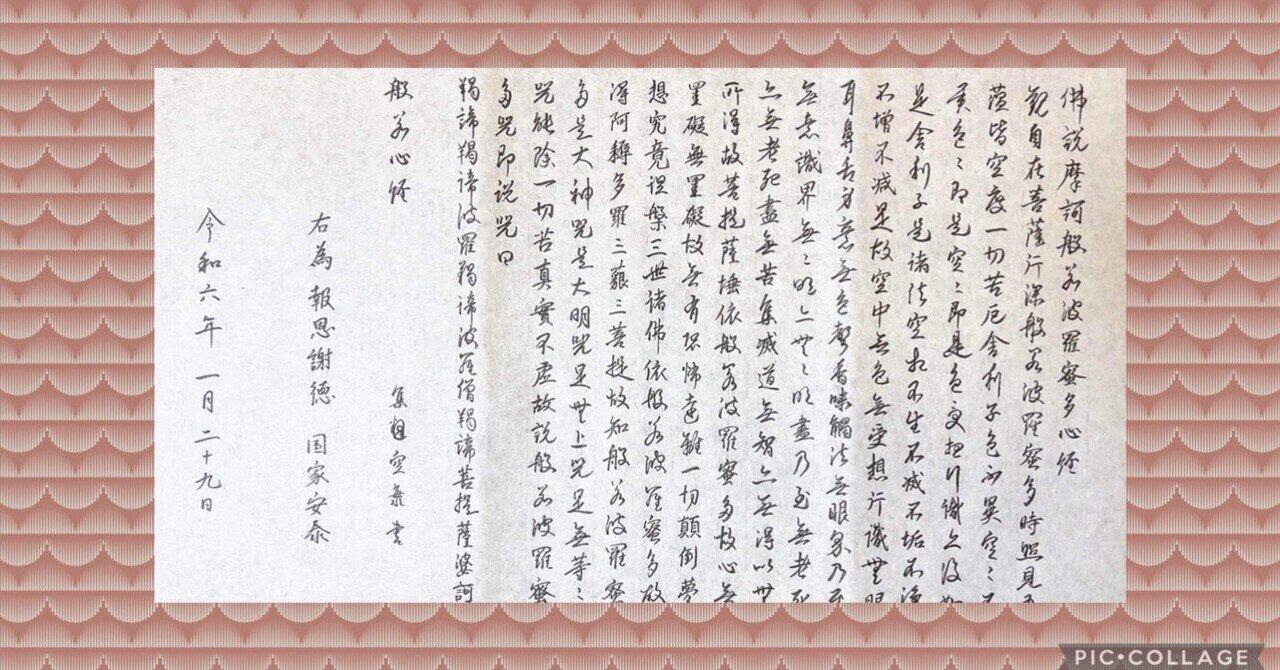 佛説摩訶般若波羅蜜多心経
観自在菩薩行深般若波羅蜜多時照見五
蘊皆空度一切苦厄舎利子色不異空々不
異色々即是空々即是色受想行識亦復如
是舎利子是諸法空相不生不滅不垢不浄
不増不減是故空中無色無受想行識無眼
耳鼻舌身意無色聲香味觸法無眼界乃至
無意識界無々明亦無々明盡乃至無老死
亦無老死盡無苦集滅道無智亦無得以無
所得故菩提薩埵依般若波羅蜜多故心無
罣礙無罣礙故無有恐怖遠離一切顛倒夢
想究竟涅槃三世諸佛依般若波羅蜜多故
得阿耨多羅三藐三菩提故知般若波羅蜜
多是大神咒是大明咒是無上咒是無等々
咒能除一切苦真實不虚故説般若波羅蜜
多咒即説咒曰
羯諦羯諦波羅羯諦波羅僧羯諦菩提薩婆訶
般若心経
集 空 書
右為 報恩謝徳 国家安泰
令和六年 一月二十九日
PIC•COLLAGE